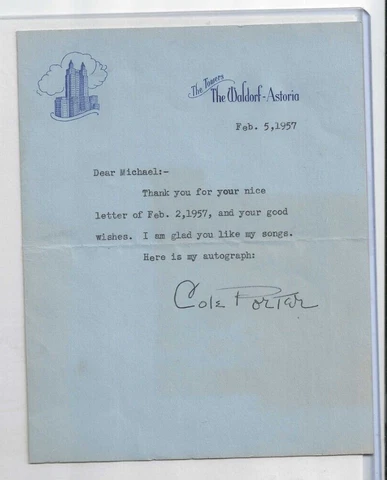 The Towers
The Waldorf-Astoria
Feb. 5,1957
Dear Michael:-
Thank you for your nice
letter of Feb. 2,1957, and your good
wishes. I am glad you like my songs.
Here is my autograph:
Cole Porter